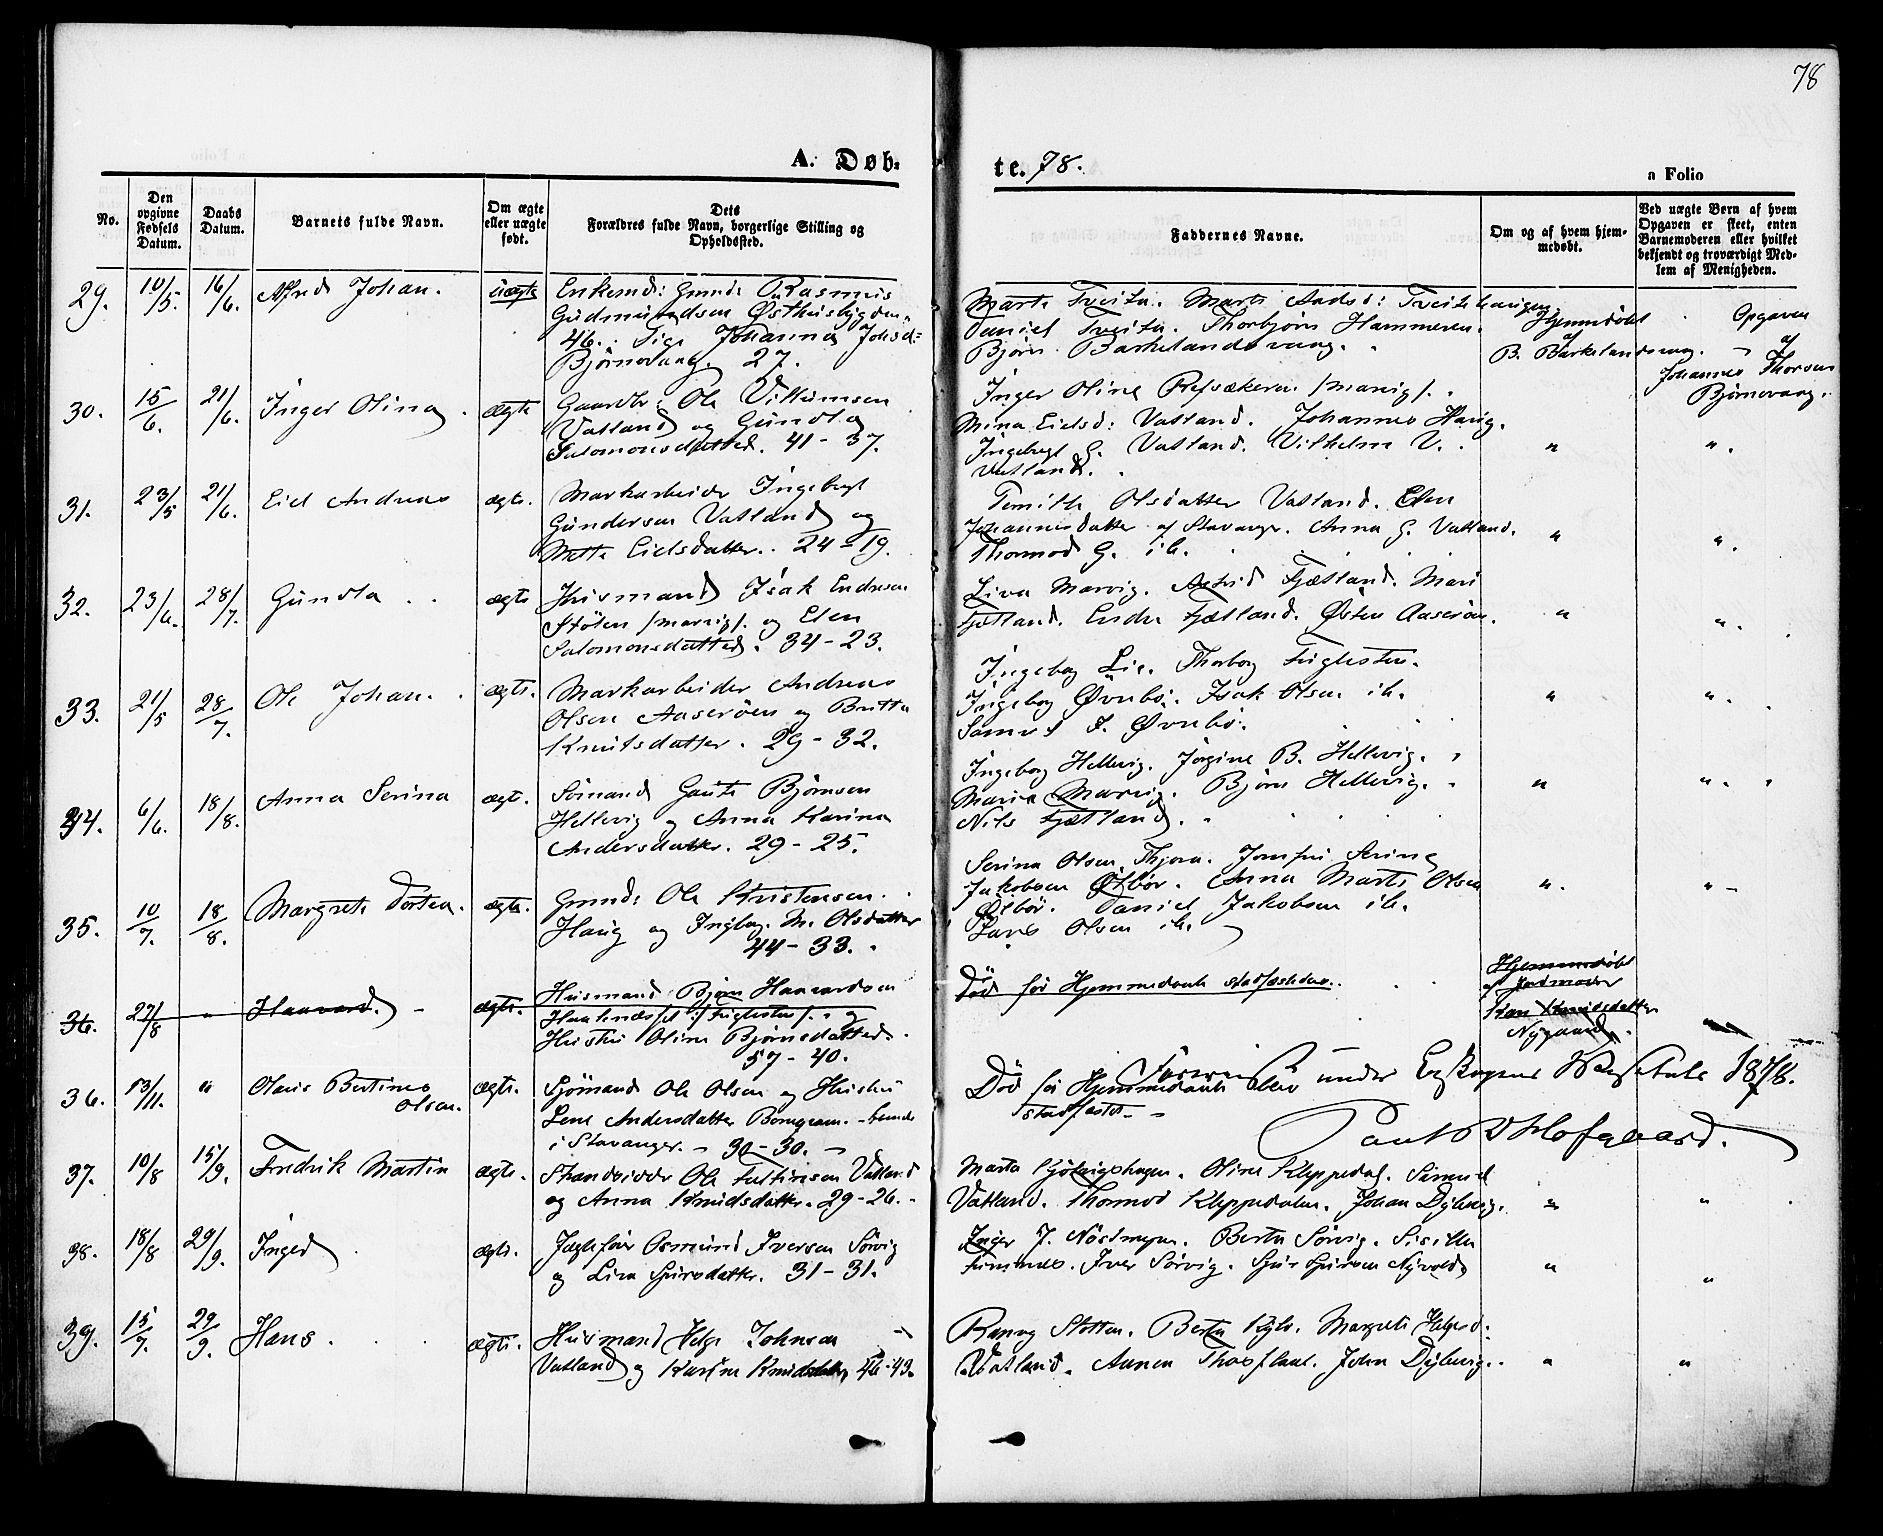 78
A. Døb-
te. 78.
a Folio
No.
Den opgivne Fødsels Datum.
Daabs Datum.
Barnets fulde Navn.
Om ægte eller uægte født.
Dets
Forældres fulde Navn, borgerlige Stilling og
Opholdssted.
Faddernes Navne.
Om og af hvem hjem-
medøbt.
Ved uægte Børn af hvem
Opgaven er skeet, enten
Barnemoderen eller hvilket
bekjendt og troværdigt Med-
lem af Menigheden.
29. 10/5. 16/6. Alfred Johan. uægte
Enkemd: Grundb: Rasmus
Gudmundsen Østhusbygden
46. Pige Johanna Johsd=
Bjørnevaag. 27.
Marta Tveita. Marta Andsd: Tveithaugen
Daniel Tveita. Thorbjørn Hammeren.
Bjørn Barkelandsvaag.
Hjemmdøbt
af
B. Barkelandsvaag.
Opgaven
af
Johannes Thorsen
Bjørnevaag.
30. 15/6. 21/6. Inger Olina. ægte
Gaardbr: Ole Villumsen
Vatland og Gunvla
Salomonsdatter. 41 - 37.
Inger Oline Refsækern /marvig/.
Mina Eielsd: Vatland. Johannes Haug.
Ingebregt G. Vatland. Vilhelm V.
Vatland.
" "
31. 23/5 21/6. Eiel Andreas ægte.
Markarbeider Ingebregt
Gundersen Vatland og
Mette Eielsdatter. 24 - 19.
Olsdatter Vatland. Elen
Johannesdatter af Stavanger. Anna G. Vatland.
Thormod G. ib.
" "
32. 23/6. 28/7. Gunvla ægte
Husmand Isak Endresen
Støten /marvig/. og Elen
Salomonsdatter. 34 - 23.
Liva Marvig. Astrid Fjætland. Mari
Fjætland. Endre Fjætland. Østen Aaserøen.
" "
33. 21/5 28/7. Ole Johan. ægte.
Markarbeider Andreas
Olsen Aaserøen og Britta
Knutsdatter. 29 - 32.
Ingebog Lie. Thorbog Fuglesten.
Ingebog Øvrebø. Isak Olsen ib.
Samuel I. Øvrebø.
" "
34. 6/6. 18/8. Anna Serina ægt.
Sømand Gaute Bjørnsen
Hellevig og Anna Karina
Andersdatter. 29 - 25.
Ingeborg Hellevig. Jørgine B. Hellevig.
Maria Marvig. Bjørn Hellevig.
Nils Fjætland.
" "
35. 10/7. 18/8. Margrete Dortea. ægte.
Grundb: Ole Kristensen
Haug og Ingbog. M. Olsdatter
44 - 33.
Serina Olsen Thjora. Jomfru Serine
Jakobsen Østbør. Anna Marta Olsen
Østbør. Daniel Jakobsen ib.
Lars Olsen ib.
" "
36. 27/8 " Haavard. ægte.
Husmand Bjørn Haavardsen
/: Fuglesten :/. og
Hustru Oline Bjørnsdatter.
57 - 40.
Død før Hjemmedaab stadfæstedes.
Hjemmedøbt
af Jordmoder
Knudsdatter
Nygaard.
36. 13/11. " Olaus Bertines
Olsen. ægte.
Sjømand Ole Olsen og Hustru
Lene Andersdatter
i Stavanger. 30 - 30.
Død før Hjemmedaab blev
stadfæstet.
Foreviist under Biskopens Visitats 1878.
37. 10/8 15/9. Fredrik Martin ægte.
Strandsidder Ole Vatland
og Anna Knudsdatter. 29 - 26.
Marta Oline Kleppedal. Simmel
Vatland. Thormod Kleppedalen. Johan Dybevig.
" "
38. 18/8 29/9. Inged ægte.
Jægtefører Osmund Iversen Sørvig
og Liva Sjursdatter. 31 - 31.
Inger J. Berta Sørvig. Sisilla
Iver Sørvig. Sjur Sjursen Nyvold
" "
39. 15/7. 29/9. Hans. ægte.
Husmand Helge Johnsen
Vatland og Karine Knudsdatter 46 - 43.
Ranvg Støtten. Berta Margrete Helgesd:
Vatland. Annea John Dybevig.
" "